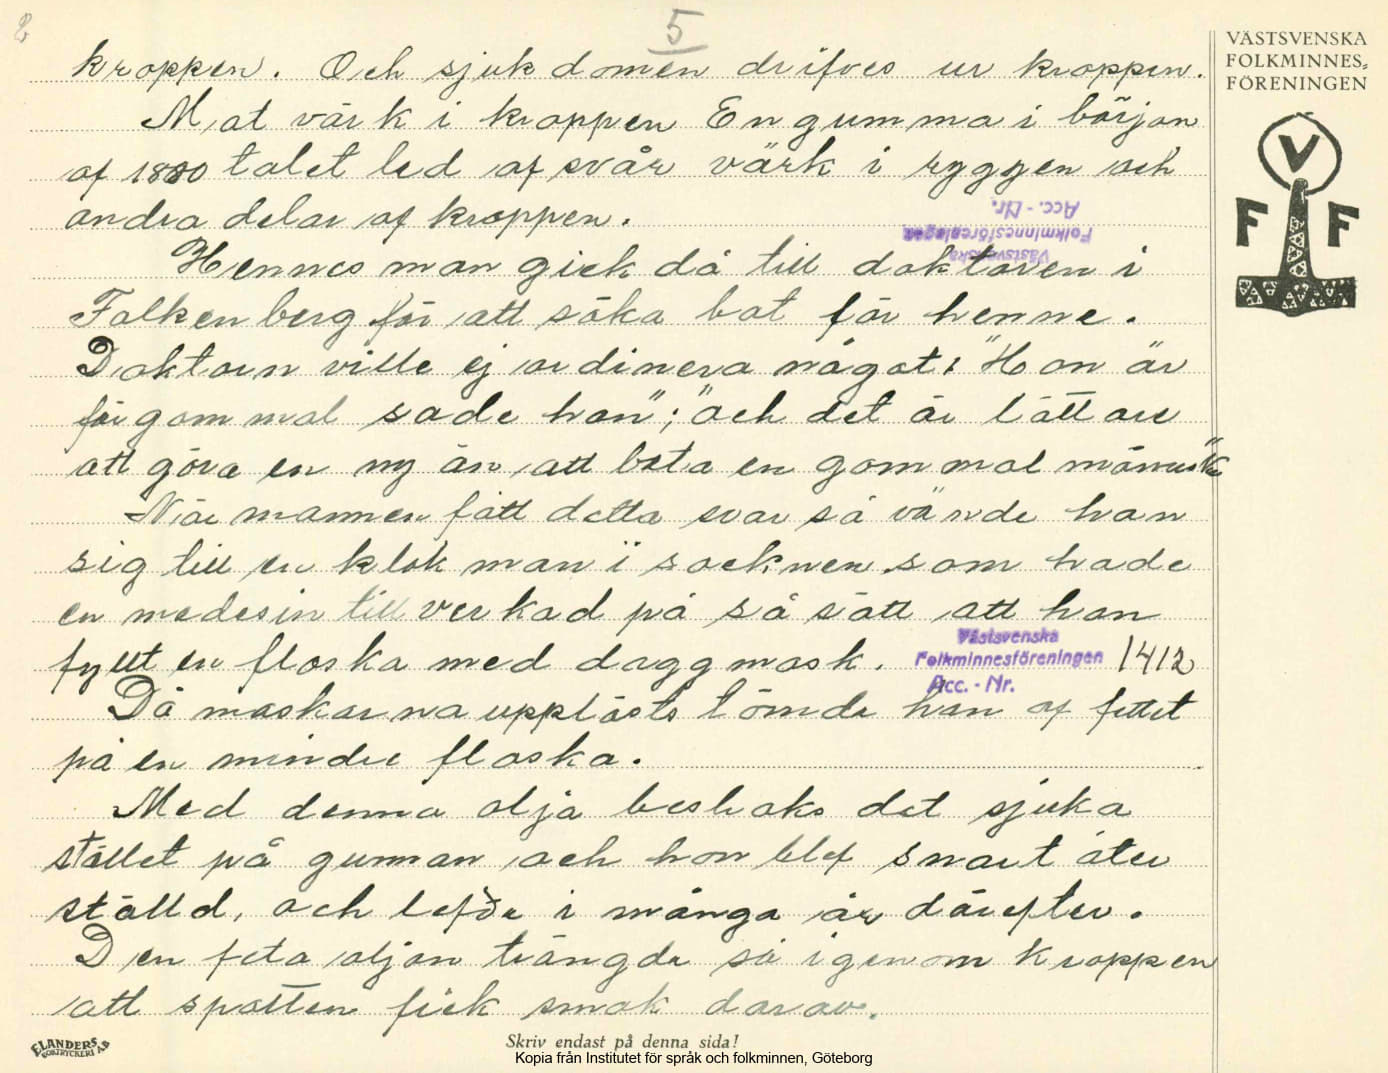 5
VÄSTSVENSKA
FOLKMINNES-
FÖRENINGEN
V
F F
kroppen. Och sjukdomen drifves ur kroppen.
Mot värk i kroppen En gumma i början
af 1880 talet led af svår värk i ryggen och
andra delar af kroppen.
Acc. - Nr.
Folkminnesföreningen
Västsvenska
Hennes man gick då till doktoren i
Falkenberg för att söka bot för henne.
Doktorn ville ej ordinera något: "Hon är
för gammal sade han"; "och det är lättare
att göra en ny än att bota en gammal mänsk"
När mannen fått detta svar så vände han
sig till en klok man i socknen som hade
en medesin tillverkad på så sätt att han
fyllt en flaska med daggmask.
Västsvenska
Folkminnesföreningen 1412
Acc. - Nr.
Då maskarna upplösts tömde han af fettet
på en mindre flaska.
Med denna olja beströks det sjuka
stället på gumman och hon blef snart åter
ställd, och lefde i många år därefter.
Den feta oljan trängde så igenom kroppen
att spotten fick smak darav.
ELANDERS
BOKTRYCKERI AB
Skriv endast på denna sida!
Kopia från Institutet för språk och folkminnen, Göteborg